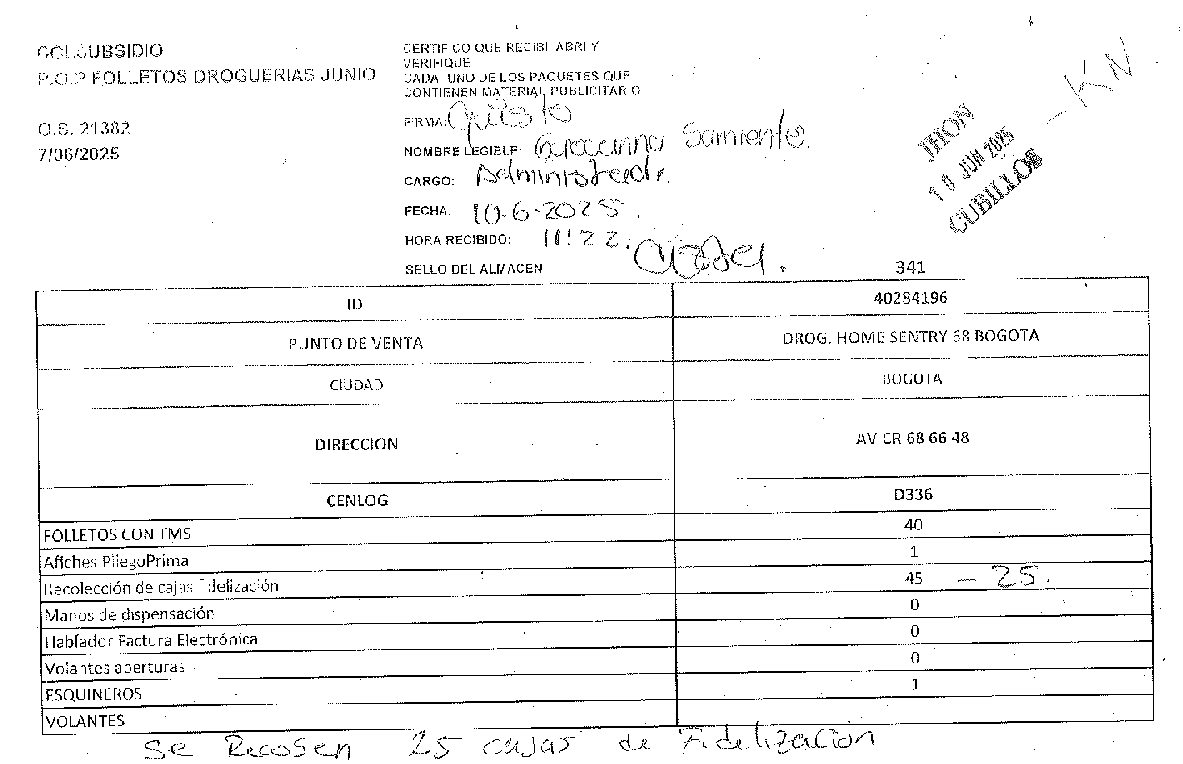 COLSUBSIDIO
P.O.P FOLLETOS DROGUERIAS JUNIO
O.S. 21382
7/06/2025
CERTIFICO QUE RECIBI ABRI Y
VERIFIQUE
CADA UNO DE LOS PAQUETES QUE
CONTIENEN MATERIAL PUBLICITARIO
FIRMA:
NOMBRE LEGIBLE: Sarmiento.
CARGO: Administrador.
FECHA: 10-6-2025.
HORA RECIBIDO: 11:22.
SELLO DEL ALMACEN
KN
JHON
10 JUN 2025
CUBILLOS
341
ID 40284196
PUNTO DE VENTA DROG. HOME SENTRY 68 BOGOTA
CIUDAD BOGOTA
DIRECCION AV CR 68 66 48
CENLOG D336
FOLLETOS CON TMS 40
Afiches PliegoPrima 1
Recolección de cajas Fidelización 45 - 25.
Manos de dispensación 0
Hablador Factura Electrónica 0
Volantes aperturas 0
ESQUINEROS 1
VOLANTES
Se Recogen 25 cajas de Fidelizacion